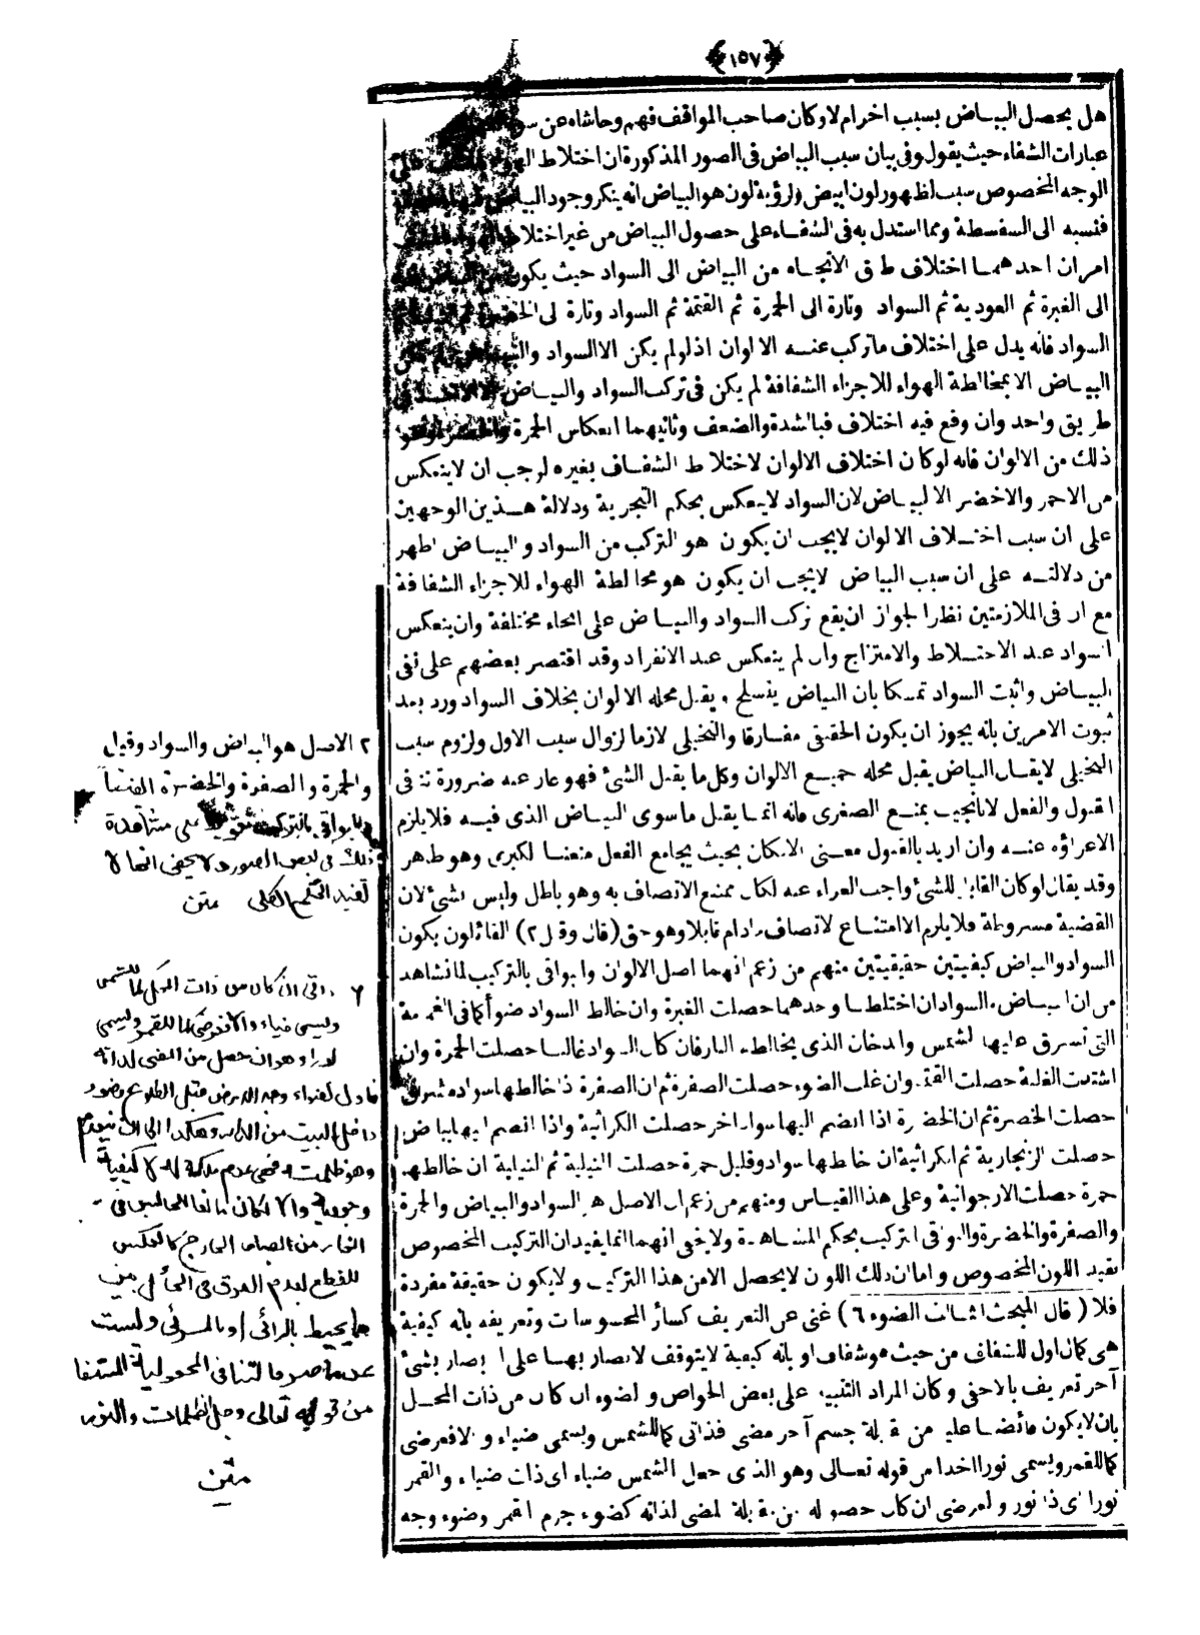 ﴿١٥٧﴾
هل يحصل البياض بسبب اخرام لا وكان صاحب المواقف فهم وحاشاه عن
عبارات الشفاء حيث يقول وفى بيان سبب البياض فى الصور المذكورة ان اختلاط
الوجه المخصوص سبب لظهور لون ابيض ولرؤية لون هو البياض انه ينكر وجود
فنسبه الى السفسطة ومما استدل به فى الشفاء على حصول البياض من غير
امران احدهما اختلاف طرق الاتجاه من البياض الى السواد حيث يكون
الى الغبرة ثم العودية ثم السواد وتارة الى الحمرة ثم القتمة ثم السواد وتارة الى
السواد فانه يدل على اختلاف ماتركب عنه الالوان اذلولم يكن الاالسواد
البياض الابمخالطة الهواء للاجزاء الشفافة لم يكن فى تركب السواد والبياض
طريق واحد وان وقع فيه اختلاف فبالشدة والضعف وثانيهما انعكاس الحمرة
ذلك من الالوان فانه لوكان اختلاف الالوان لاختلاط الشفاف بغيره لوجب ان لاينعكس
من الاحمر والاخضر الا البياض لان السواد لاينعكس بحكم التجربة ودلالة هذين الوجهين
على ان سبب اختلاف الالوان لايجب ان يكون هو التركب من السواد والبياض اظهر
من دلالته على ان سبب البياض لايجب ان يكون هو مخالطة الهواء للاجزاء الشفافة
مع ان فى الملازمتين نظرا لجواز ان يقع تركب السواد والبياض على انحاء مختلفة وان ينعكس
السواد عند الاختلاط والامتزاج وان لم ينعكس عند الانفراد وقد اقتصر بعضهم على نفى
البياض واثبت السواد تمسكا بان البياض ينسلخ ويقبل محله الالوان بخلاف السواد ورد بعد
ثبوت الامرين بانه يجوز ان يكون الحقيقى مفارقا والتخيلى لازما لزوال سبب الاول ولزوم سبب
التخيلى لايقال البياض يقبل محله جميع الالوان وكل ما يقبل الشئ فهو عار عنه ضرورة تنافى
القبول والفعل لانا نجيب بمنع الصغرى فانه انما يقبل ماسوى البياض الذى فيه فلايلزم
الاعراؤه عنه وان اريد بالقبول معنى الامكان بحيث يجامع الفعل منعنا الكبرى وهو ظاهر
وقد يقال لوكان القابل للشئ واجب العراء عنه لكان ممتنع الاتصاف به وهو باطل وليس بشئ لان
القضية مشروطة فلايلزم الاامتناع الاتصاف مادام قابلا وهو حق (قال وقيل ٢) القائلون بكون
السواد والبياض كيفيتين حقيقيتين منهم من زعم انهما اصل الالوان والبواقى بالتركيب لما نشاهد
من ان البياض والسواد ان اختلطا وحدهما حصلت الغبرة وان خالط السواد ضوأ كما فى الغمامة
التى تشرق عليها الشمس والدخان الذى يخالطه النار فان كان السواد غالبا حصلت الحمرة وان
اشتدت الغلبة حصلت القتمة وان غلب الضوء حصلت الصفرة ثم ان الصفرة اذا خالطها سواد مشرق
حصلت الخضرة ثم ان الخضرة اذا انضم اليها سواد اخر حصلت الكراثية واذا انضم اليها بياض
حصلت الزنجارية ثم الكراثية ان خالطها سواد وقليل حمرة حصلت النيلية ثم النيلية ان خالطها
حمرة حصلت الارجوانية وعلى هذا القياس ومنهم من زعم ان الاصل هو السواد والبياض والحمرة
والصفرة والخضرة والبواقى بالتركيب بحكم المشاهدة ولايخفى انهما انما يفيدان التركيب المخصوص
يفيد اللون المخصوص واما ان ذلك اللون لايحصل الامن هذا التركيب ولايكون حقيقة مفردة
فلا (قال المبحث الثانى الضوء ٦) غنى عن التعريف كسائر المحسوسات وتعريفه بانه كيفية
هى كمال اول للشفاف من حيث هو شفاف او بانه كيفية لايتوقف الابصار بها على ابصار بشئ
آخر تعريف بالاخفى وكان المراد التنبيه على بعض الخواص والضوء ان كان من ذات المحل
بان لايكون فائضا عليه من مقابلة جسم آخر مضئ فذاتى كما للشمس ويسمى ضياء والافعرضى
كما للقمر ويسمى نورا اخذا من قوله تعالى وهو الذى جعل الشمس ضياء اى ذات ضياء والقمر
نورا اى ذا نور والعرضى ان كان حصوله من مقابلة المضئ لذاته كضوء جرم القمر وضوء وجه
٢ الاصل هو البياض والسواد وقيل
والحمرة والصفرة والخضرة ايضا
والبواقى بالتركيب على مشاهدة
ذلك فى بعض الصور ولا يخفى انها لا
تفيد الحكم الكلى متن
٦ ذاتى ان كان من ذات المحل كما للشمس
ويسمى ضياء والا فعرضى كما للقمر ويسمى
نورا وهو ان حصل من المضئ لذاته
فاول كضوء وجه الارض قبل الطلوع وضوء
داخل البيت من الثانى وهكذا الى ان ينعدم
وهو ظلمة فهى عدم ملكة له لا كيفية
وجودية والا لكان مانعا للجالس فى
الغار من ابصار الخارج كالعكس
للقطع بعدم الفرق فى الحائل بين
ما يحيط بالرائى او بالمرئى وليست
عدما صرفا لتنافى المجعولية المستفاد
من قوله تعالى وجعل الظلمات والنور
متن